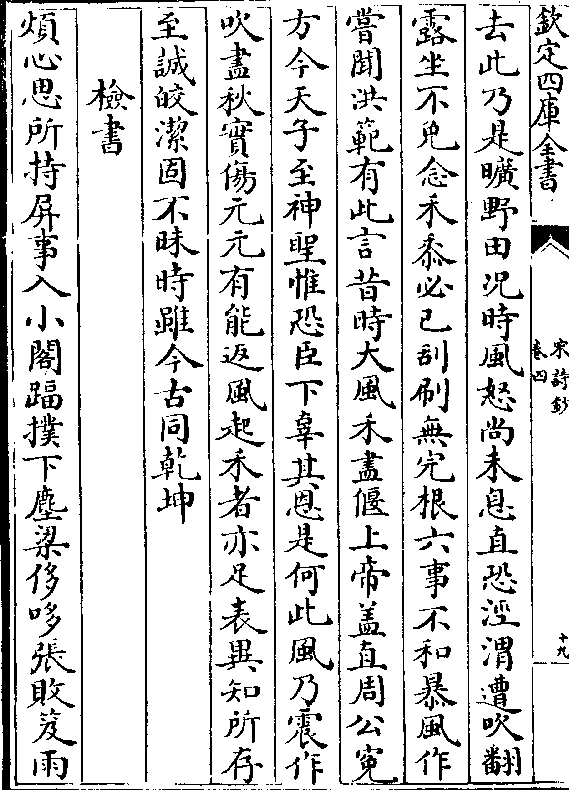 欽定四庫全書
宋詩鈔
卷四
十九
去此乃是曠野田况時風怒尚未息直恐涇渭遭吹翻
露坐不免念禾黍必已刮刷無完根六事不和暴風作
嘗聞洪範有此言昔時大風禾盡偃上帝盖直周公寃
方今天子至神聖惟恐臣下辜其恩是何此風乃震作
吹盡秋實傷元元有能返風起禾者亦足表異知所存
至誠皎潔固不昧時雖今古同乾坤
檢書
煩心思所持屏事入小閣蹋撲下塵梁侈哆張敗笈雨